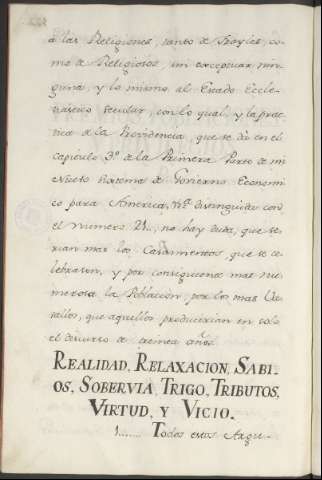 á las Religiones, tanto de Frayles, co-
mo de Religiosos, sin exceptuar nin-
guna, y lo mismo al Estado Ecle-
siastico Secular, con lo qual, y la prac-
tica de la Providencia, que se dá en el
capitulo 3º de la Primera Parte de mi
Nuevo Sistema de Govierno Economi-
co para America, distinguida con
el numero 21., no hay duda, que se-
rian mas los Casamientos, que se ce-
lebrasen, y por consiguiente mas nu-
merosa la Poblacion por los mas Va-
sallos, que aquellos producirian en solo
el discurso de treinta años.
REALIDAD, RELAXACION, SABI-
OS, SOBERVIA, TRIGO, TRIBUTOS,
VIRTUD, Y VICIO.
1....... Todos estos Argu-